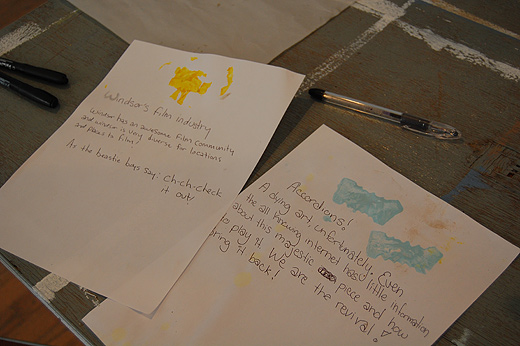 Windsor's film industry
Windsor has an awesome film community
and windsor is very diverse for locations
and places to film!
As the beastie boys say: ch-ch-check
it out!
Accordions!
A dying art, unfortunately. Even
the all knowing internet has little information
about this majestic peice and how
to play it. We are the revival!
bring it back!